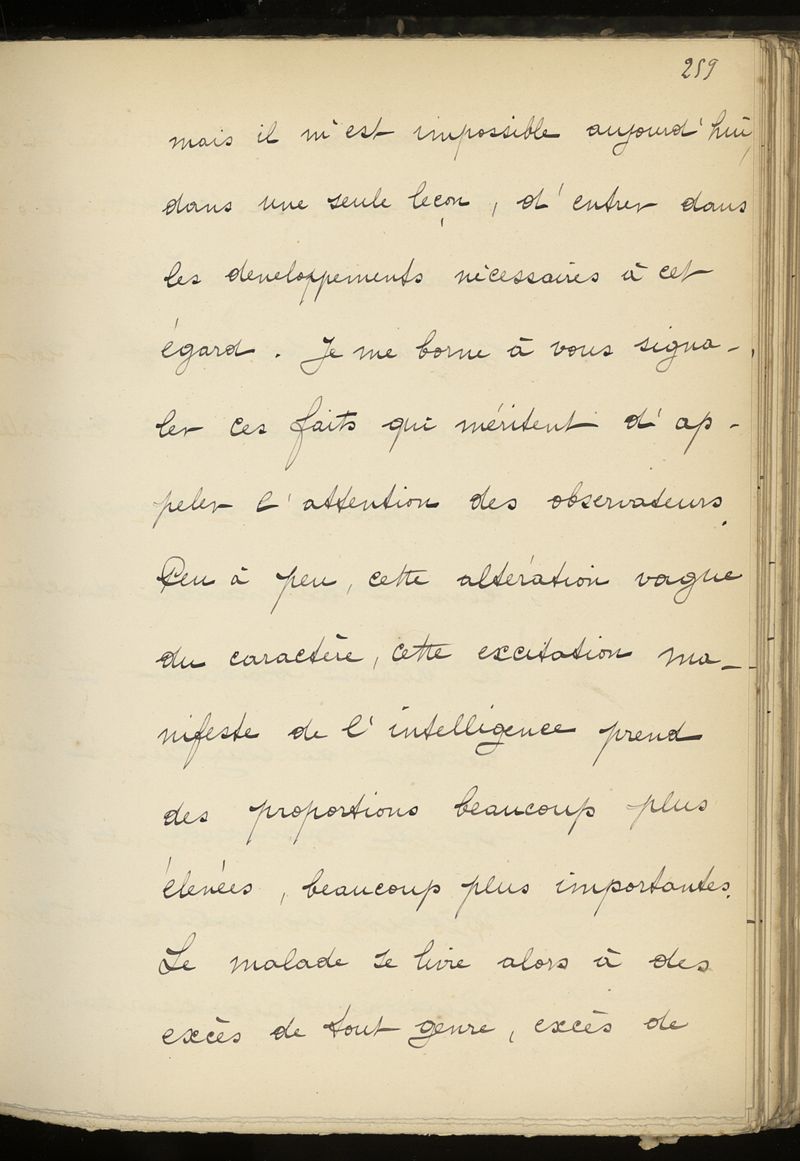 259
mais il m'est impossible aujourd'hui,
dans une seule leçon, d'entrer dans
les developpements nécessaires à cet
égard. Je me borne à vous signa-
ler ces faits qui méritent d'ap-
peler l'attention des observateurs.
Peu à peu, cette altération vague
du caractère, cette excitation ma-
nifeste de l'intelligence prend
des proportions beaucoup plus
élevées, beaucoup plus importantes.
Le malade se livre alors à des
excès de tout genre, excès de